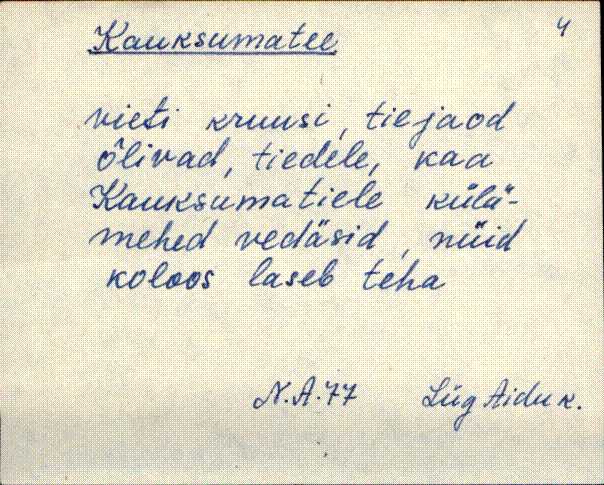 4
Kauksumatee
vieti kruusi, tiejaod
õlivad, tiedele, kaa
Kauksumatiele külä-
mehed vedäsid, nüid
koloos laseb teha
N.A.77 Lüg Aidu k.